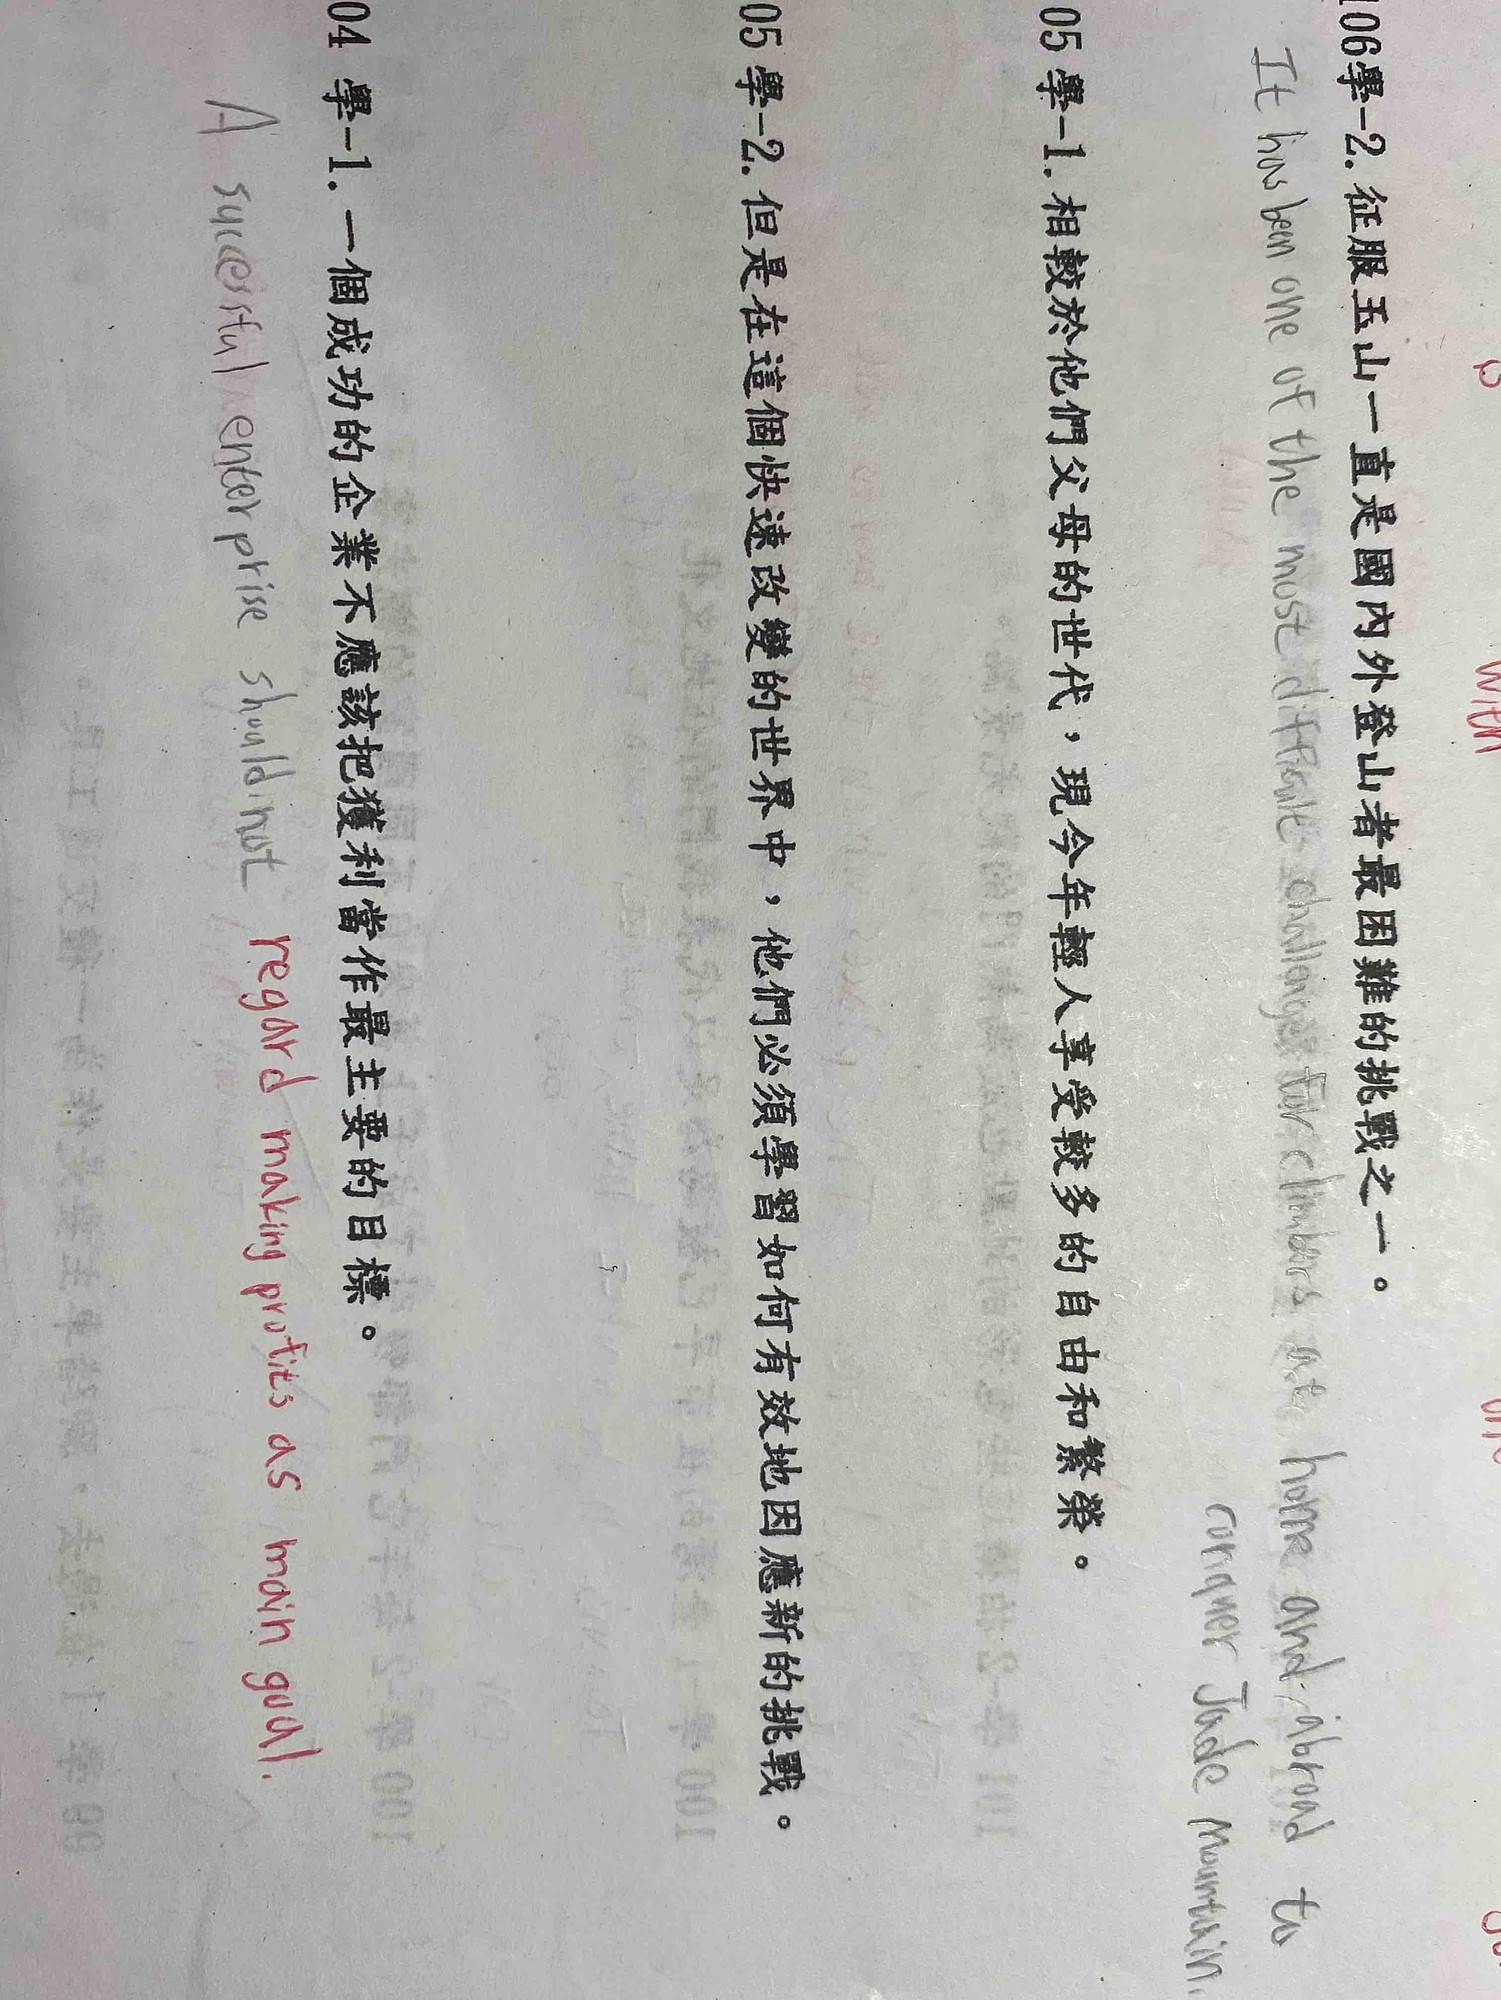 106學-2. 征服玉山一直是國內外登山者最困難的挑戰之一。
It has been one of the most difficult challenge for climbers at home and abroad to
conquer Jade Mountain.
05學-1. 相較於他們父母的世代，現今年輕人享受較多的自由和繁榮。
05學-2. 但是在這個快速改變的世界中，他們必須學習如何有效地因應新的挑戰。
04 學-1. 一個成功的企業不應該把獲利當作最主要的目標。
A successful enterprise should not regard making profits as main goal.